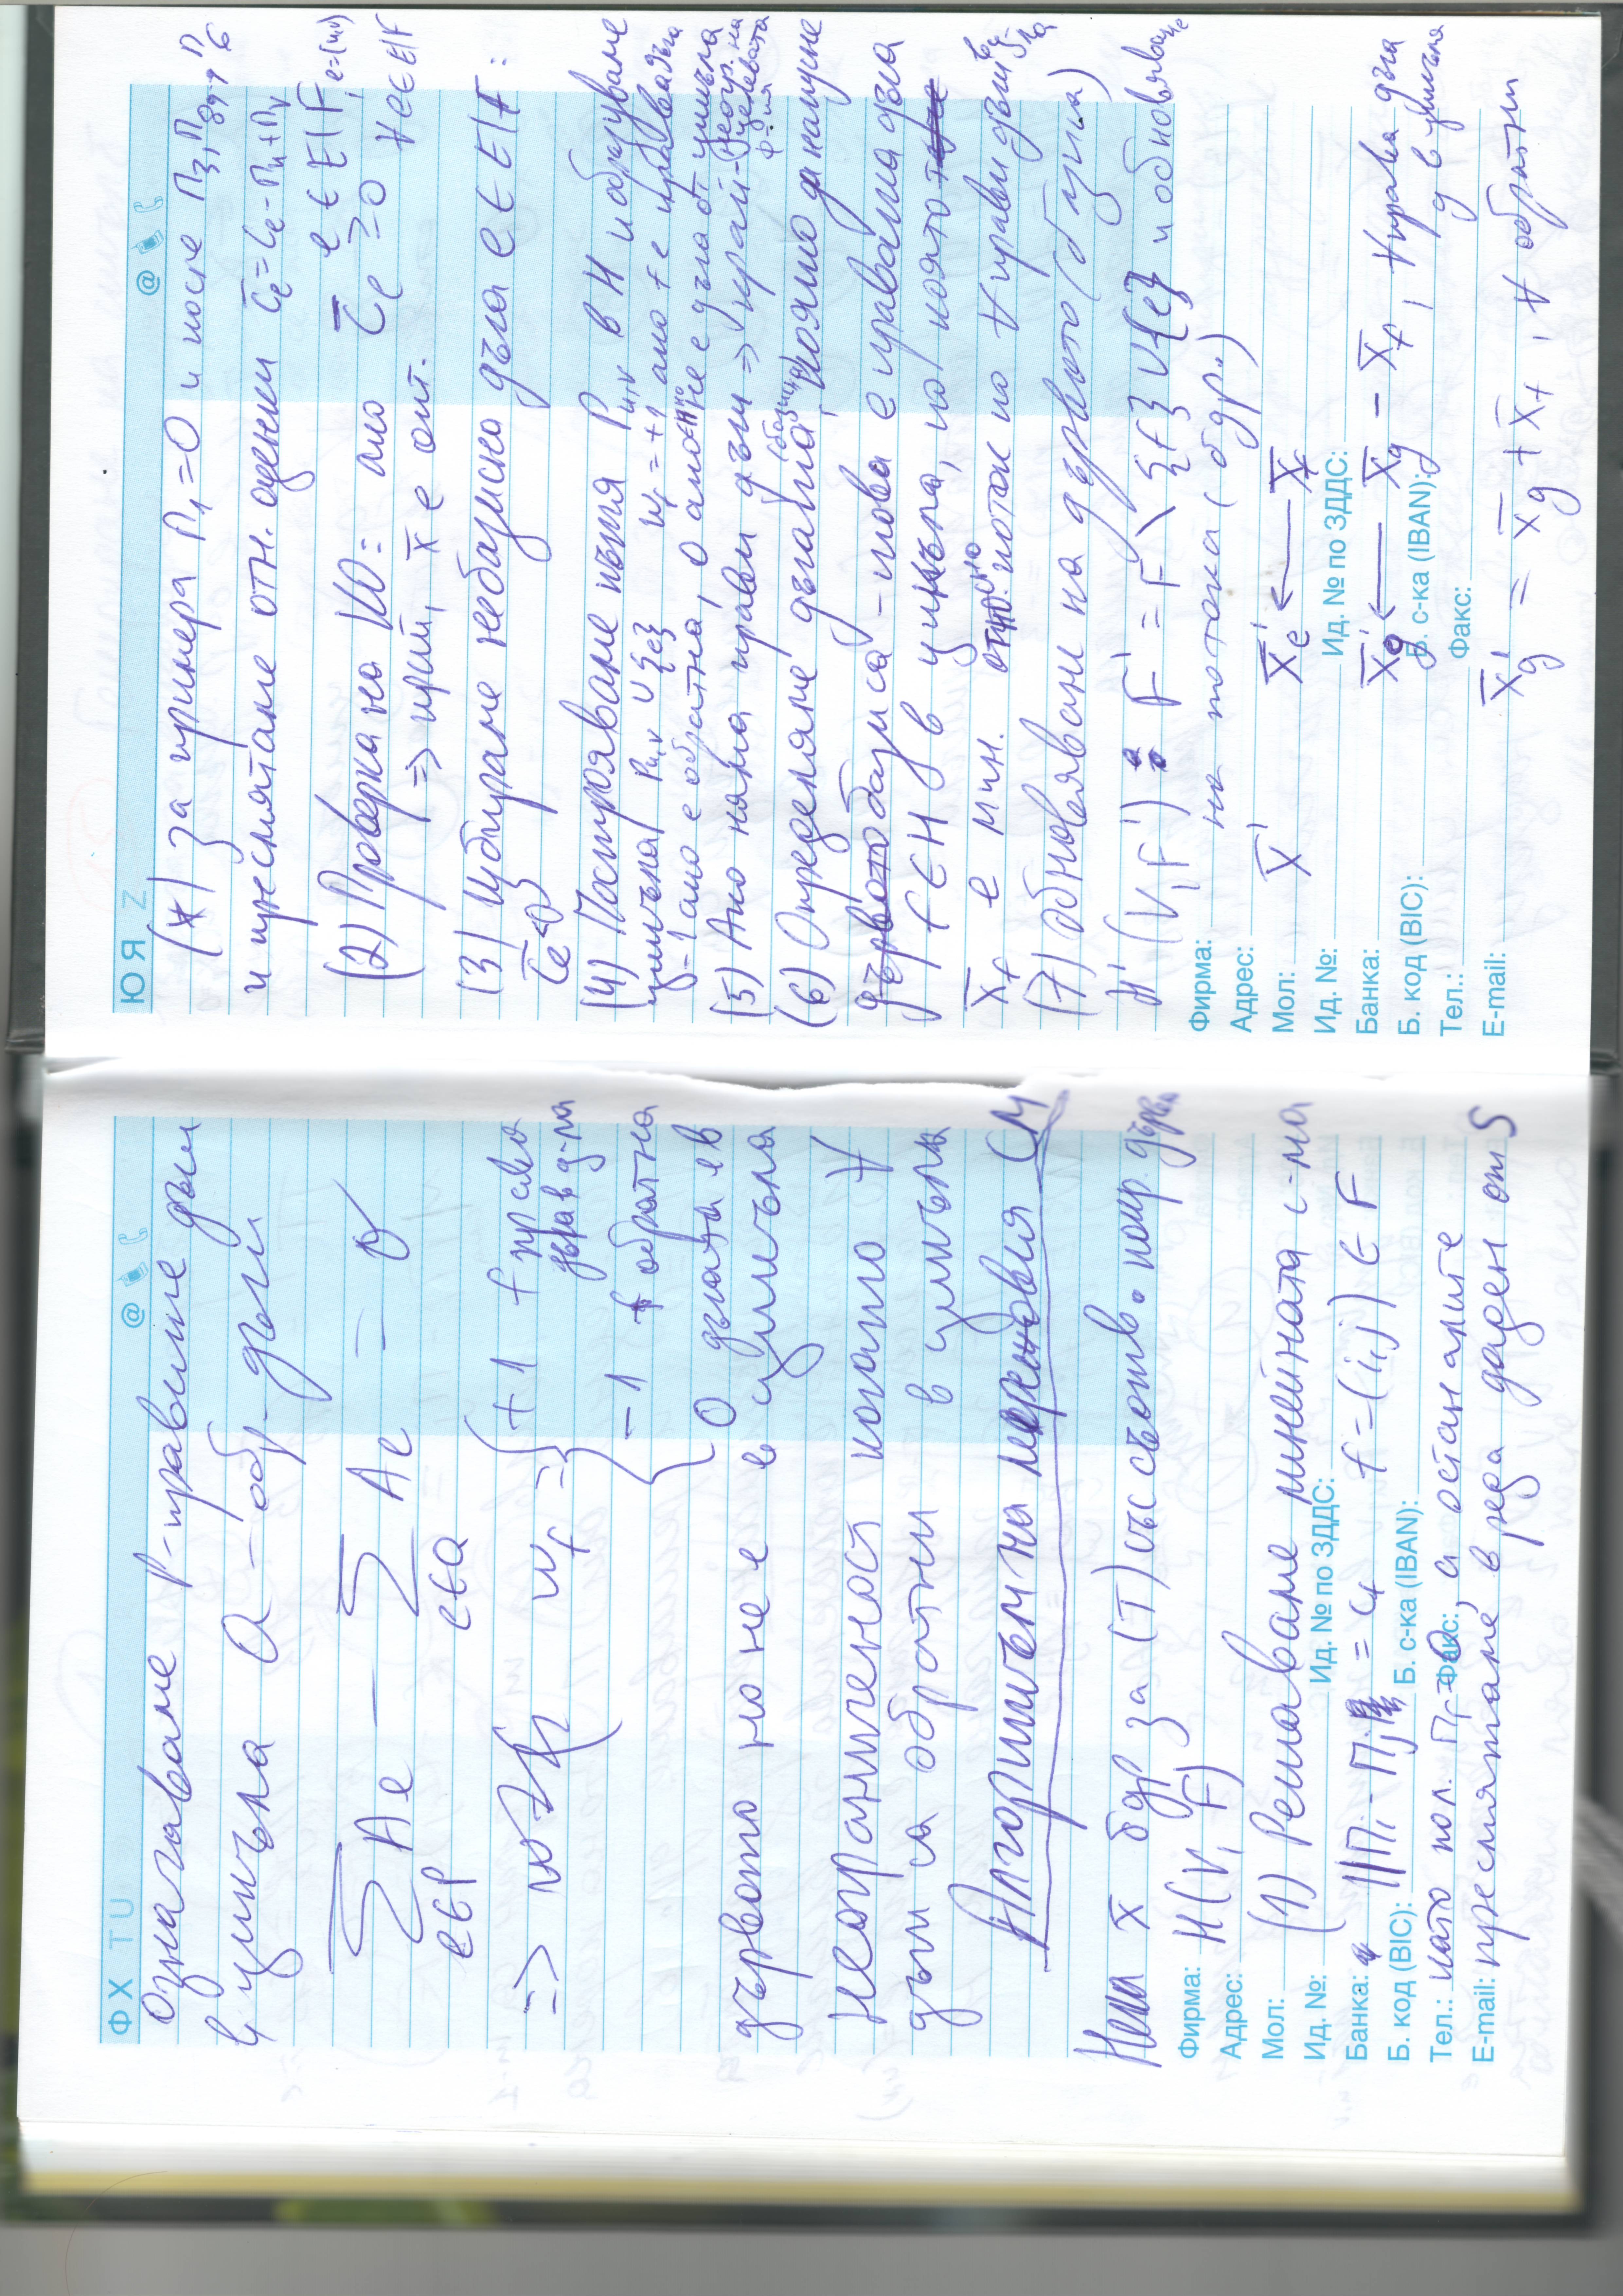 Ф Х T U @
Означаваме P-правите дъги
в цикъла Q - обр. дъги
∑ Ae - ∑ Ae = 0
e∈P e∈Q
=> wf = { +1 f права
-1 f обратна
0 дъгата е в
дървото но не е в цикъла
неограниченост когато ∀
дъги са обратни в цикъла
Алгоритъм на мрежовия СМ
Нека x̄ бдр за (T) със съответв. покр. дърво
H(V, F)
(1) Решаваме линейната с-ма
Πi - Πj = cf f=(i,j) ∈ F
като пол. Πr=0, а останалите
пресмятаме в реда даден от S
Фирма:
Адрес:
Мол:
Ид. №: Ид. № по ЗДДС:
Банка:
Б. код (BIC): Б. с-ка (IBAN):
Тел.: Факс:
E-mail:
Ю Я Z @
(*) за примера Π1=0 и после Π3,
и пресмятаме отн. оценки c̄e=ce-Πu+Πv e∈E\F, e=(u,v)
(2) Проверка на КО: ако c̄e ≥0 ∀e∈E\F
=> край, x̄ е опт.
(3) Избираме небазисна дъга e∈E\F:
c̄e<0
(4) Построяване пътя Pu,v в H и образуваме
цикъла Pu,v ∪ {e} wf=+1 ако f е права дъга
-1 ако е обратна, 0 ако не е дъга от цикъла
(5) Ако няма прави дъги => край - неогр. на целевата ф-ия
(6) Определяне дъгата, която да напусне
базиса - това е правата дъга
f∈H в цикъла, по която
x̄f е мин. поток по ∀ прави дъги
(7) обновяване на дървото (базиса)
H'(V, F') : F' = F \ {f} ∪ {e} и обновяване
на потока (бдр.)
x̄' x̄'e ← x̄f
x̄'g ← x̄g - x̄f, ∀ права дъга
g в цикъла
x̄'g = x̄g + x̄f, ∀ обратни
Фирма:
Адрес:
Мол:
Ид. №: Ид. № по ЗДДС:
Банка:
Б. код (BIC): Б. с-ка (IBAN):
Тел.: Факс:
E-mail: